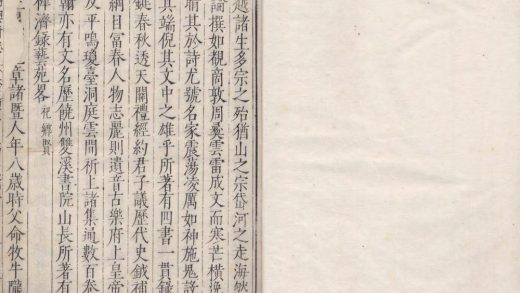 越諸生多宗之殆猶山之宗岱河之走海然
論撰如覩商敦周彝雲雷成文而寒芒橫逸
睛其於詩尤號名家震蕩凌厲如神施鬼設
其端倪其文中之雄乎所著有四書一貫錄
鉞春秋透天關禮經約君子議歷代史鉞補
綱目富春人物志麗則遺音古樂府上皇帝
及平鳴瓊臺洞庭雲間祈上諸集通數百
翰亦有文名歷饒州雙溪書院山長所著有
稗濟錄藝苑畧 祀鄉賢
章諸暨人年八歲時父命牧牛隴